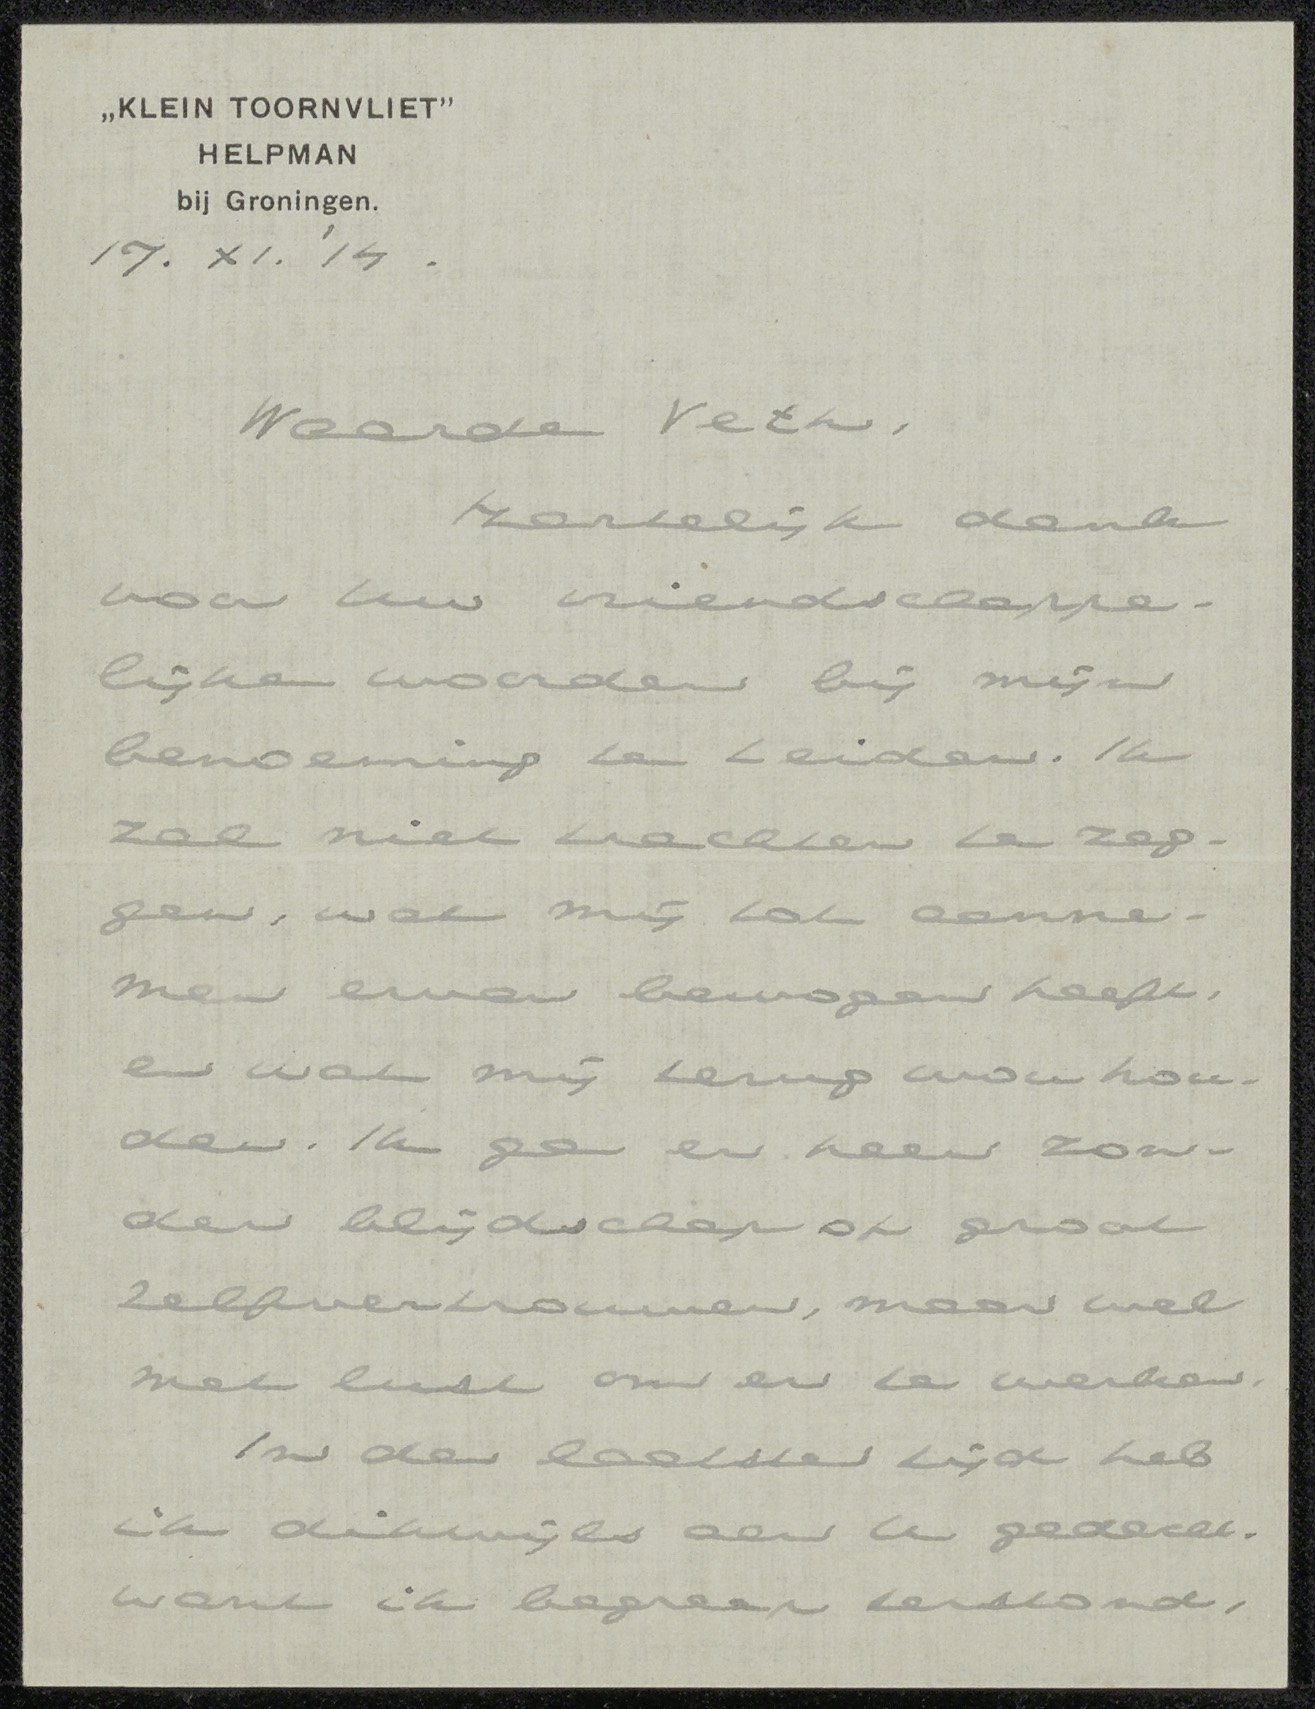 „KLEIN TOORNVLIET”
HELPMAN
bij Groningen.
17. XI. '14.
Waarde Veth,
Hartelijk dank
voor Uw vriendschappe-
lijke woorden bij mijn
benoeming te Leiden. Ik
zal niet trachten te zeg-
gen, wat mij tot aanne-
men ervan bewogen heeft,
en wat mij terug wou hou-
den. Ik ga er heen zon-
der blijdschap of groot
zelfvertrouwen, maar wel
met lust om er te werken.
In den laatsten tijd heb
ik dikwijls aan U gedacht.
want ik begreep terstond,